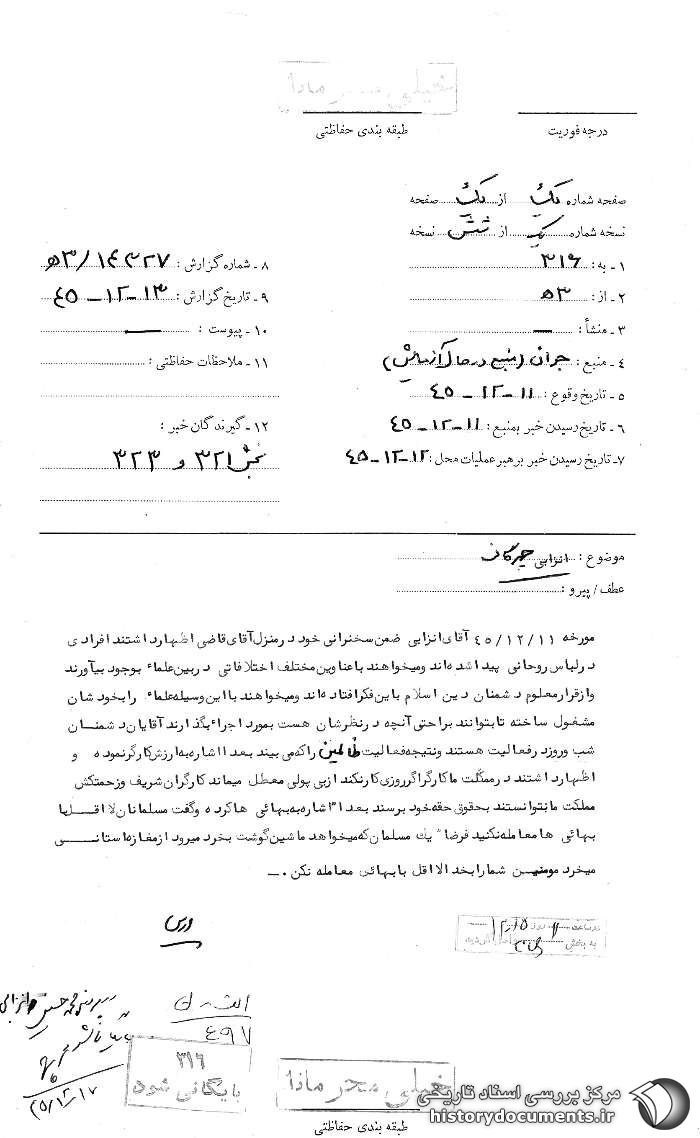 خیلی محرمانه
درجه فوریت
طبقه بندی حفاظتی
صفحه شماره یک از یک صفحه
نسخه شماره یک از شش نسخه
۱ - به : ۳۱۶
۲ - از : ۳ ه
۳ - منشأ : —
۴ - منبع : (منبع در حال آزمایش)
۵ - تاریخ وقوع : ۱۱-۱۲-۴۵
۶ - تاریخ رسیدن خبر بمنبع : ۱۱-۱۲-۴۵
۷ - تاریخ رسیدن خبر برهبر عملیات محل : ۱۲-۱۲-۴۵
۸ - شماره گزارش : ۱۴۳۲۷/۳ ه
۹ - تاریخ گزارش : ۱۳-۱۲-۴۵
۱۰ - پیوست : —
۱۱ - ملاحظات حفاظتی :
۱۲ - گیرندگان خبر :
بخش ۳۲۱ و ۳۲۳
موضوع : انزابی چهرگانی
عطف / پیرو :
مورخه ۴۵/۱۲/۱۱ آقای انزابی ضمن سخنرانی خود در منزل آقای قاضی اظهار داشتند افرادی
در لباس روحانی پیدا شده اند و میخواهند با عناوین مختلف اختلافاتی در بین علماء بوجود بیآورند
و از قرار معلوم دشمنان دین اسلام باین فکر افتاده اند و میخواهند با این وسیله علماء را بخودشان
مشغول ساخته تا بتوانند براحتی آنچه در نظرشان هست بمورد اجراء بگذارند آقایان دشمنان
شب و روز در فعالیت هستند و نتیجه فعالیت ظالمین را که می بیند بعد اشاره به ارزش کارگر نموده و
اظهار داشتند در مملکت ما کارگر اگر روزی کار نکند از بی پولی معطل میماند کارگران شریف و زحمتکش
مملکت ما نتوانستند بحقوق حقه خود برسند بعد اشاره به بهائی ها کرده و گفت مسلمانان لااقل با
بهائی ها معامله نکنید فرضا" یک مسلمان که میخواهد ماشین گوشت بخرد میرود از مغازه استانسی
میخرد مومنین شما را بخدا لااقل با بهائی معامله نکن . —
به بخش
واصل گردید
۴۹۷
۴۵/۱۲/۱۷
۳۱۶
بایگانی شود
خیلی محرمانه
طبقه بندی حفاظتی
مرکز بررسی اسناد تاریخی
historydocuments.ir